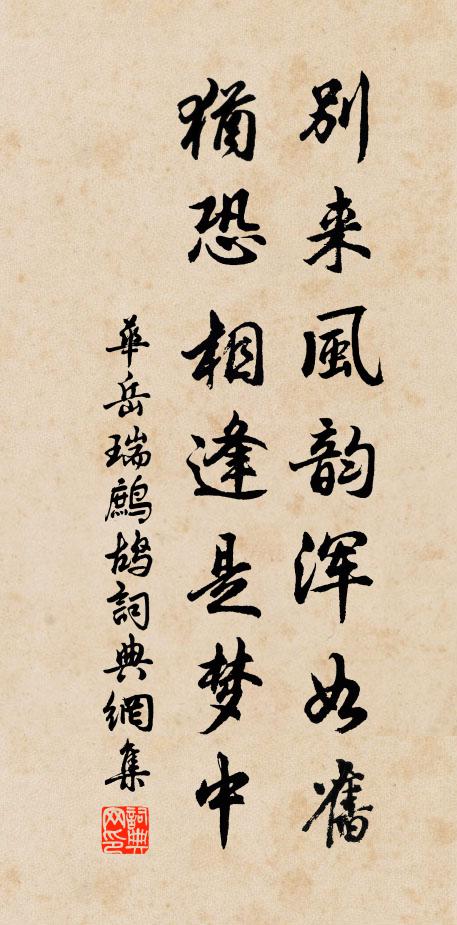 別来風韵浑如舊
猶恐相逢是梦中
華岳瑞鷓鴣詞典網集
詞典
网印